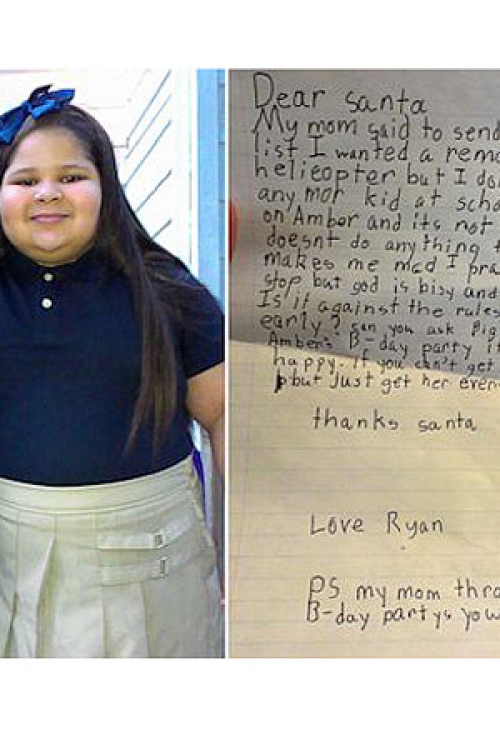 Dear santa
My mom said to send
list I wanted a remo
helicopter but I do
any mor kid at scho
on Amber and its not
doesnt do any thing
makes me mad I pra
stop but god is bisy and
Is it against the rules
early? can you ask Big
Amber's B-day party it
happy. If you can't get
but Just get her ever
thanks santa
Love Ryan
PS my mom thro
B-day partys yow